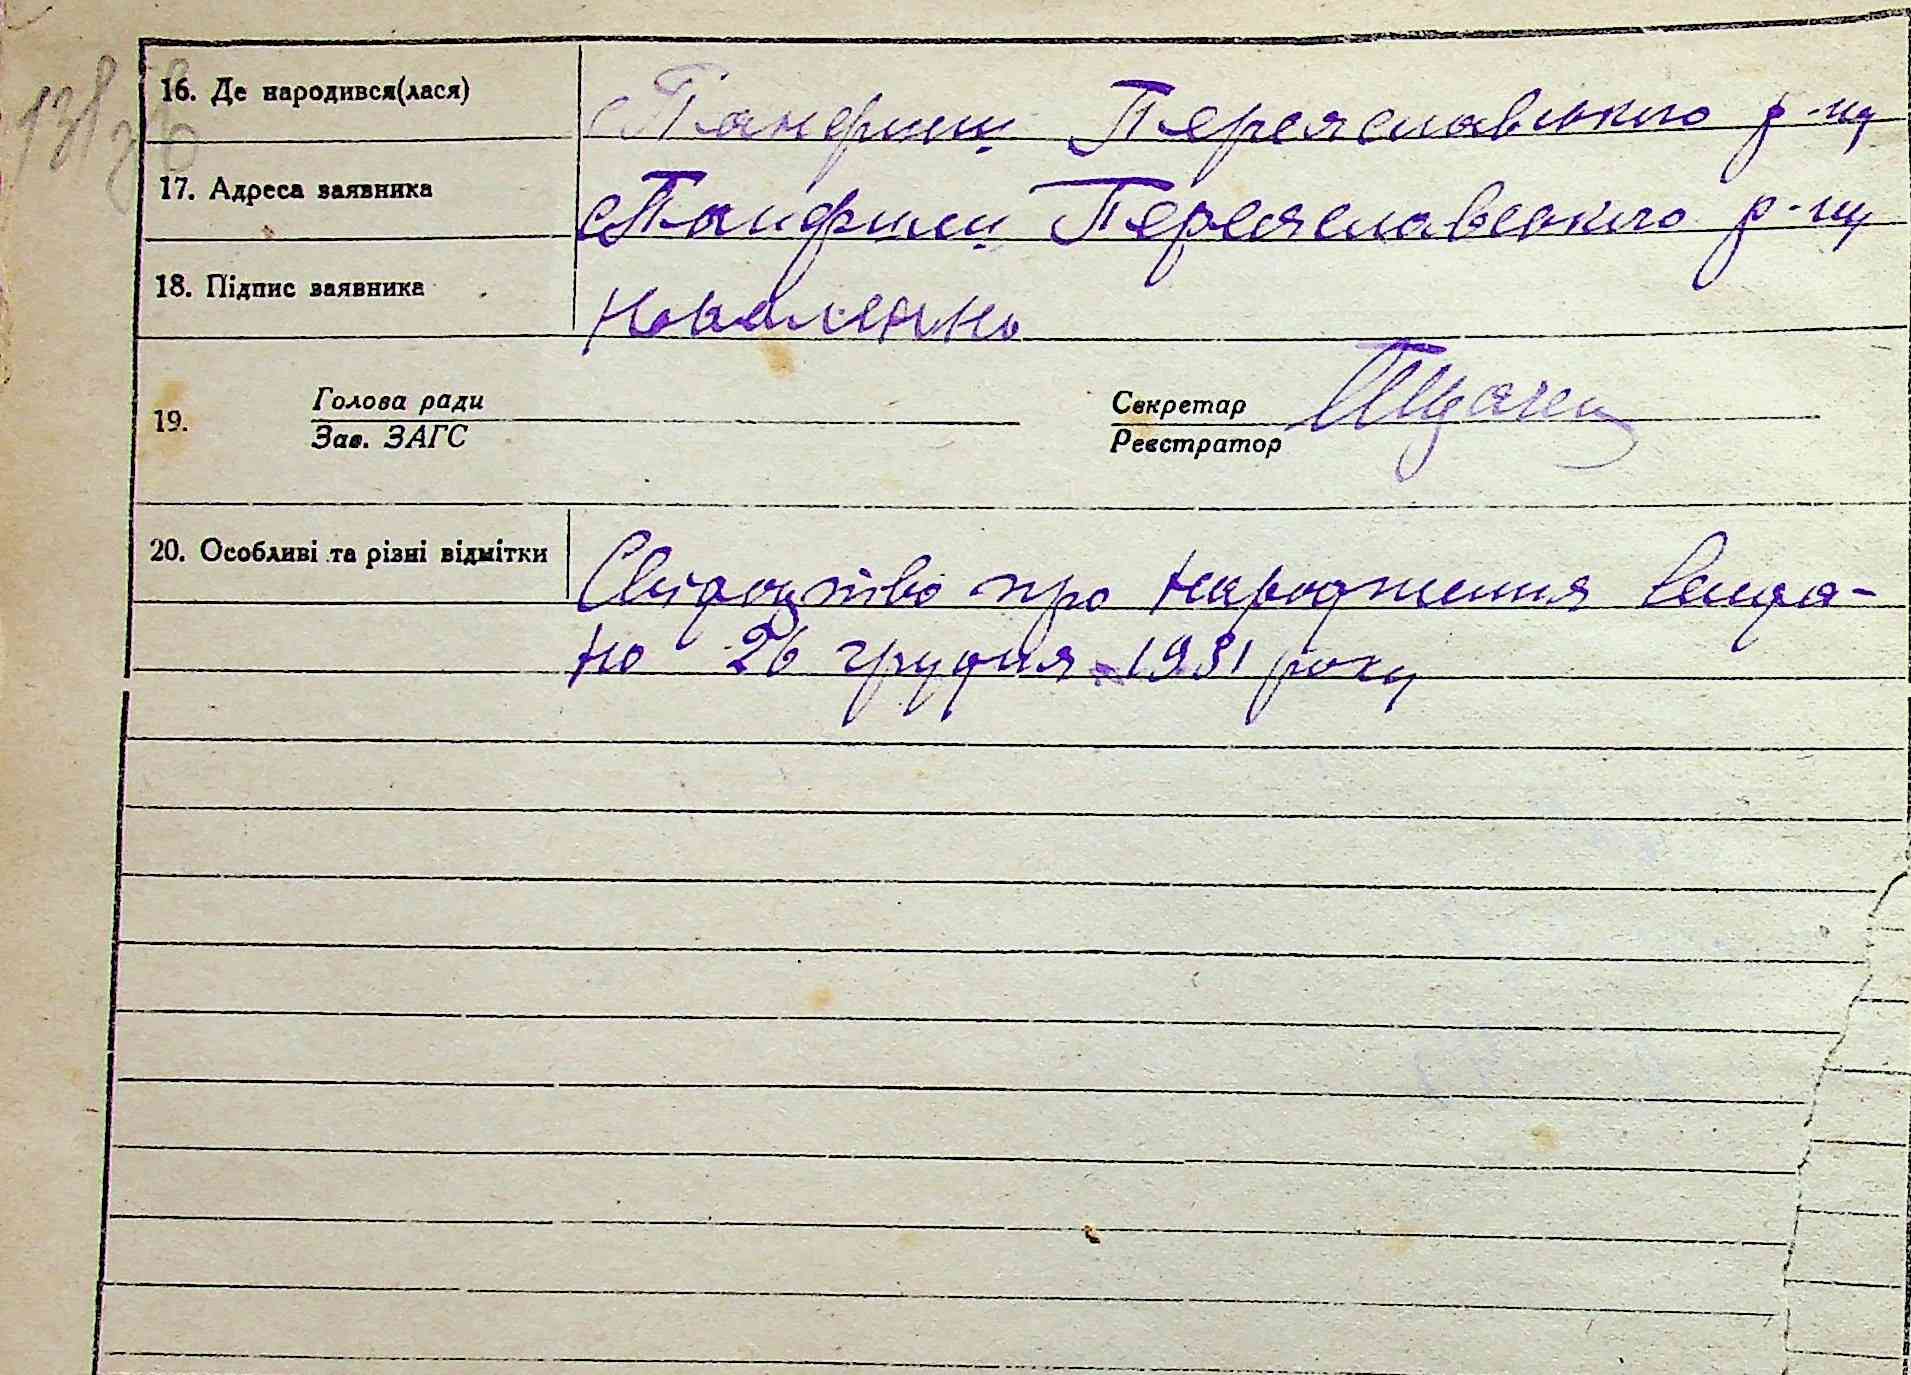 16. Де народився(лася) с Панфили Переяславського р-ну
17. Адреса заявника с Панфили Переяславського р-ну
18. Підпис заявника Коваленко
19. Голова ради Секретар
Зав. ЗАГС Реєстратор
20. Особливі та різні відмітки Свідоцтво про народження вида-
но 26 грудня 1931 року